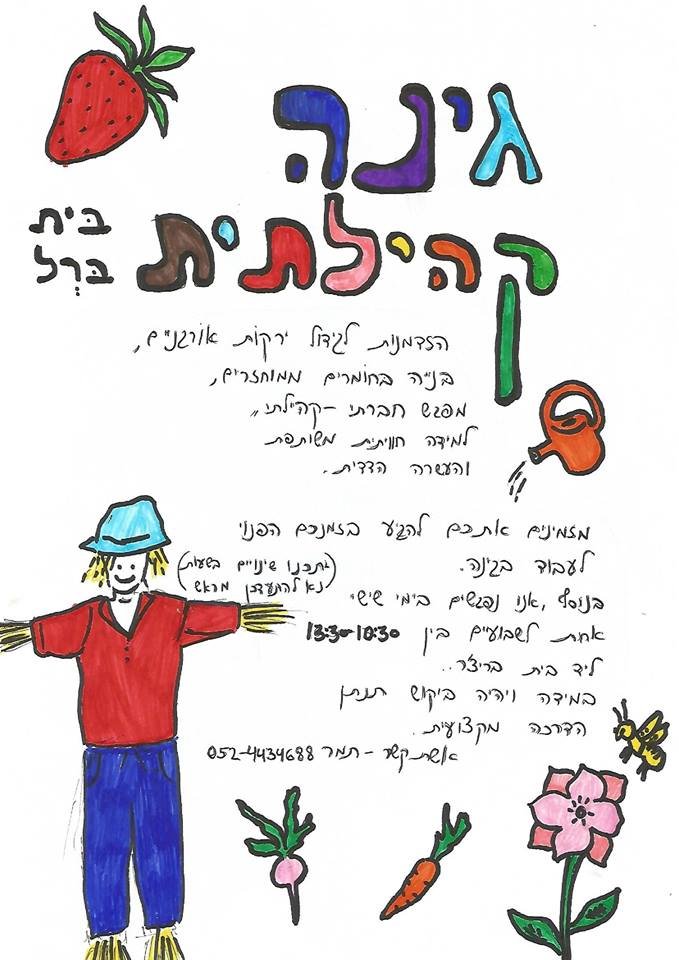 גינה
קהילתית
בית
ברל
הזדמנות לגידול ירקות אורגניים,
בנייה בחומרים ממוחזרים,
מפגש חברתי-קהילתי,,
למידה חוויתית משותפת
והעשרה הדדית.
מזמינים אתכם להגיע בזמנכם הפנוי
לעבוד בגינה.
(יתכנו שינויים בשעות
נא להתעדכן מראש)
בנוסף, אנו נפגשים בימי שישי
אחת לשבועיים בין 13:30-10:30
ליד בית בריצ'ר..
במידה ויהיה ביקוש תנתן
הדרכה מקצועית.
אשת קשר - תמר 052-4434688